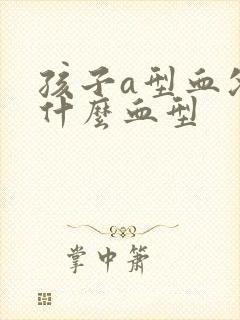 孩子a型血
什麼血型
掌中簫